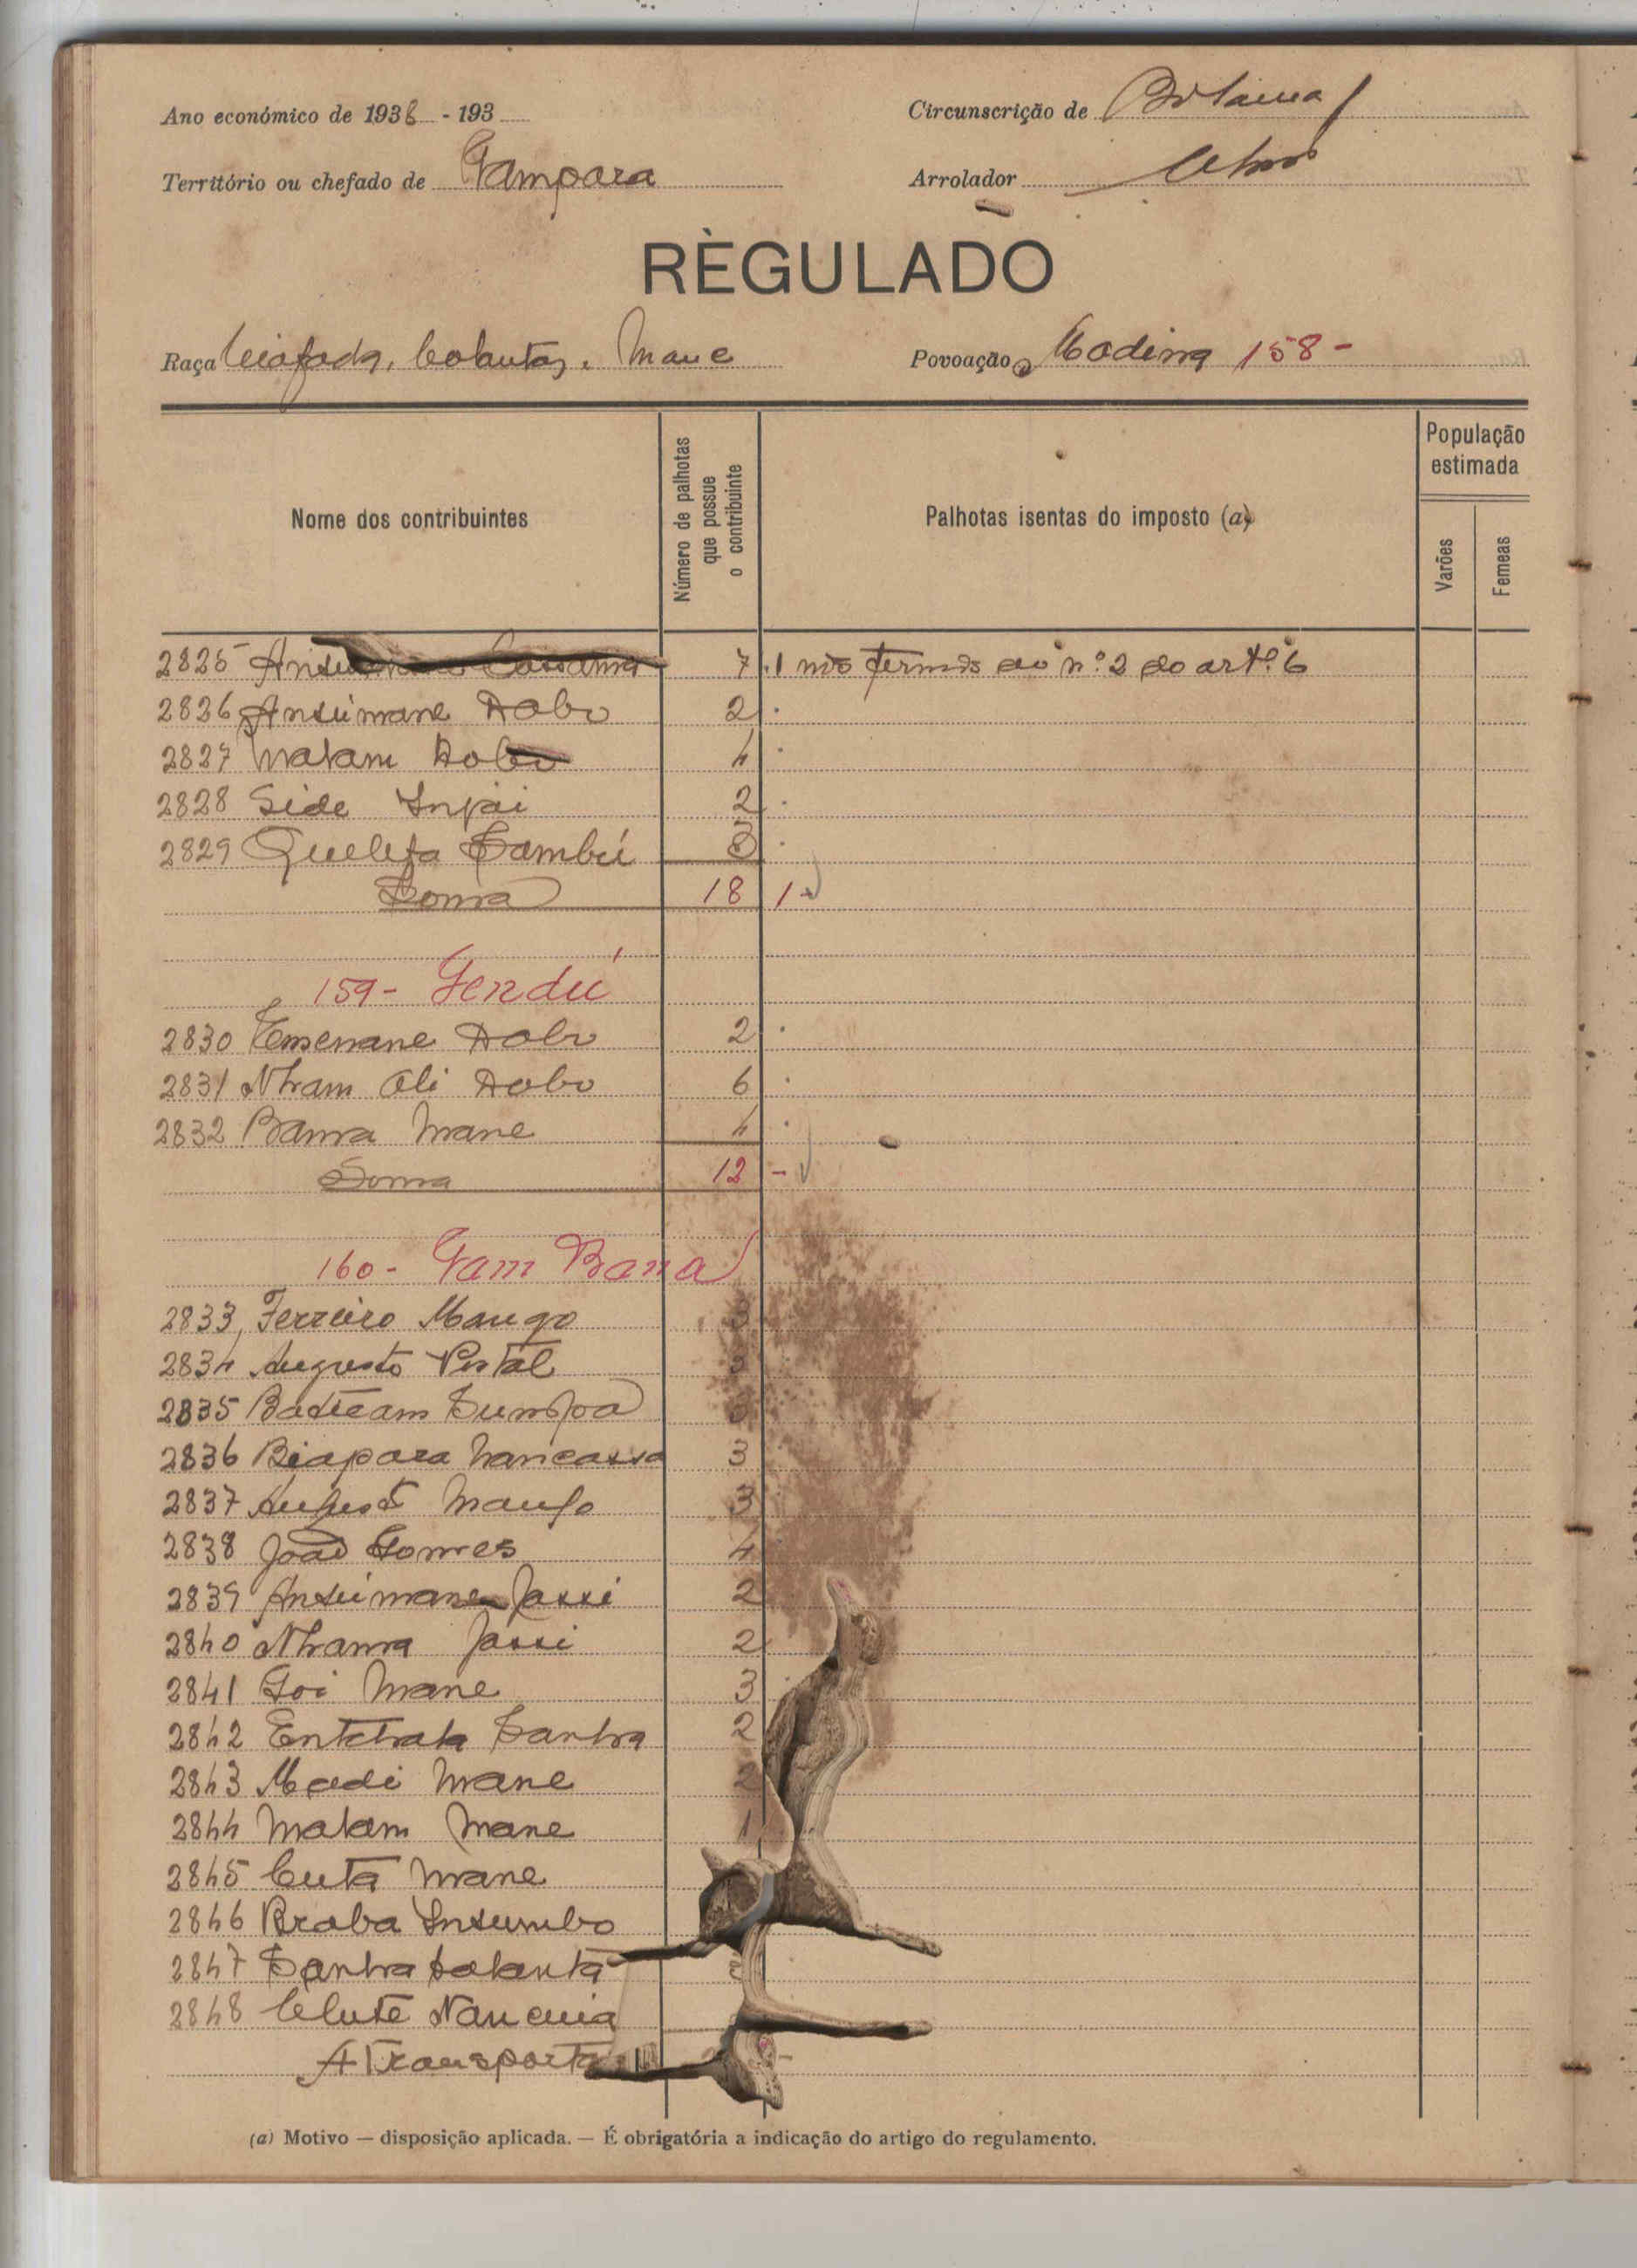 Ano económico de 1938 - 193
Circunscrição de Bolama
Território ou chefado de Gampara
Arrolador
RÈGULADO
Raça Mane
Povoação Madina 158 -
Nome dos contribuintes
Número de palhotas que possue o contribuinte
Palhotas isentas do imposto (a)
População estimada
Varões
Femeas
2825 Cassama 7 . 1 nos termos do nº 2 do artº 6
2826 Ansumane Dabo 2 .
2827 Malam Dabo 4 .
2828 Side Injai 2 .
2829 Queleta Sambú 3 .
Soma 18 1 -
159 - Gendú
2830 Dabo 2 .
2831 Nham Ali Dabo 6 .
2832 Bama Mane 4 .
Soma 12 -
160 - Gam Bana
2833 Ferreiro Mango 3
2834 Augusto Vital
2835
2836 Biapara 3
2837 3
2838 João Gomes 4
2839 Ansumane Jassi 2
2840 Nhama Jassi 2
2841 Goi Mane 3
2842 Sanha 2
2843 Madi Mane 2
2844 Malam Mane 1
2845 Cuta Mane
2846 Braba Insumbo
2847 Sanha
2848
A Transportar
(a) Motivo — disposição aplicada. — É obrigatória a indicação do artigo do regulamento.